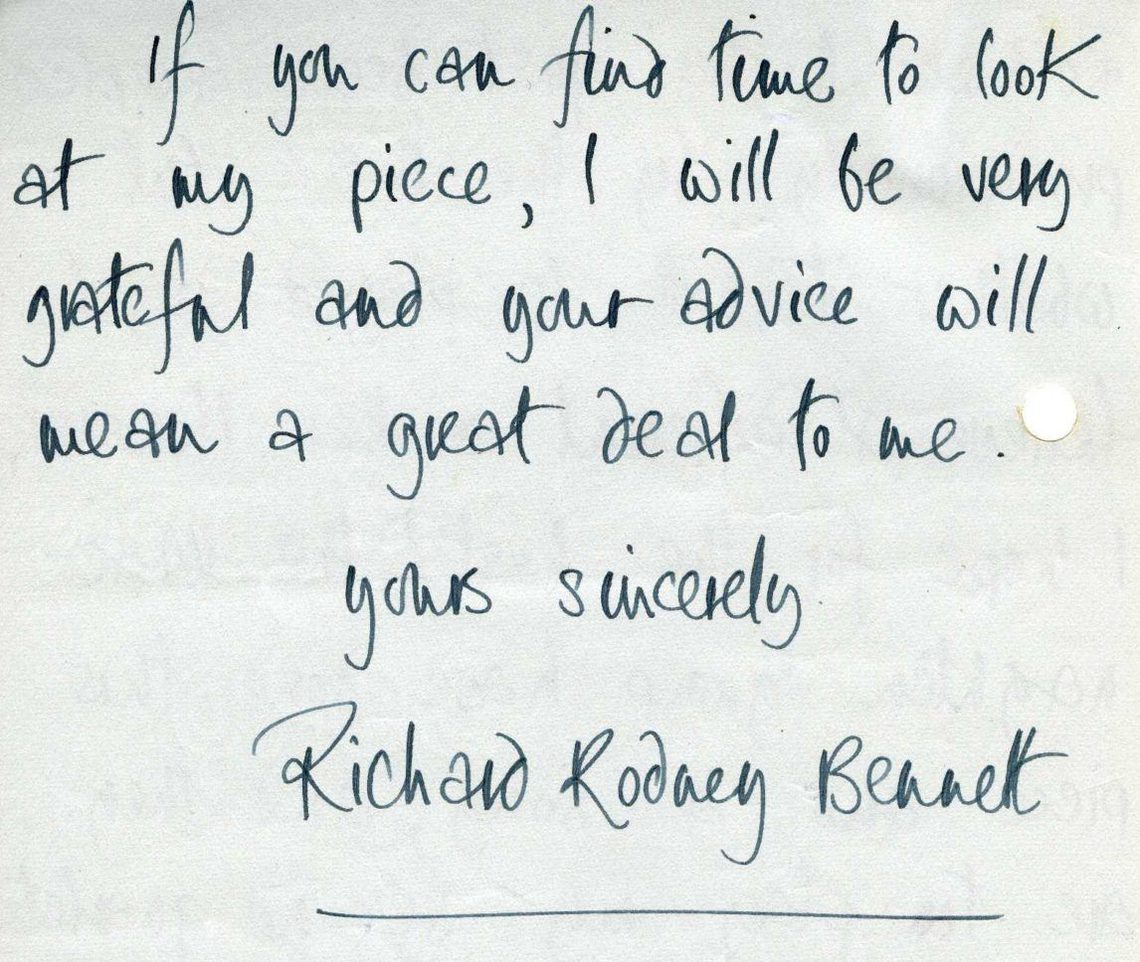 If you can find time to look
at my piece, I will be very
grateful and your advice will
mean a great deal to me.
yours sincerely
Richard Rodney Bennett